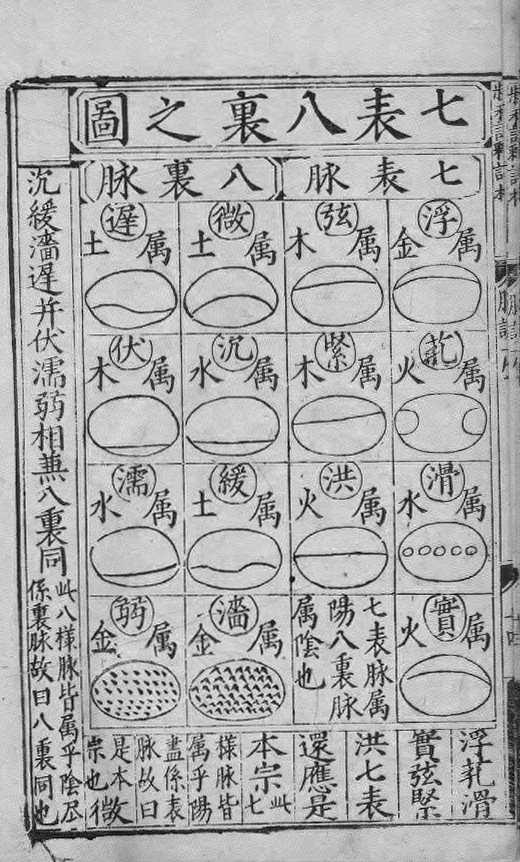 七表八裏之圖
七表脉
八裏脉
浮属金
芤属火
滑属水
實属火
弦属木
緊属木
洪属火
七表脉属
陽八裏脉
属陰也
微属土
沉属水
緩属土
濇属金
遲属土
伏属木
濡属水
弱属金
浮芤滑
實弦緊
洪七表
還應是
本宗此七
樣脉皆
属乎陽
盡係表
脉故曰
是本
宗也
微
沉緩濇遲并伏濡弱相兼八裏同
此八樣脉皆属乎陰尽
係裏脉故曰八裏同也